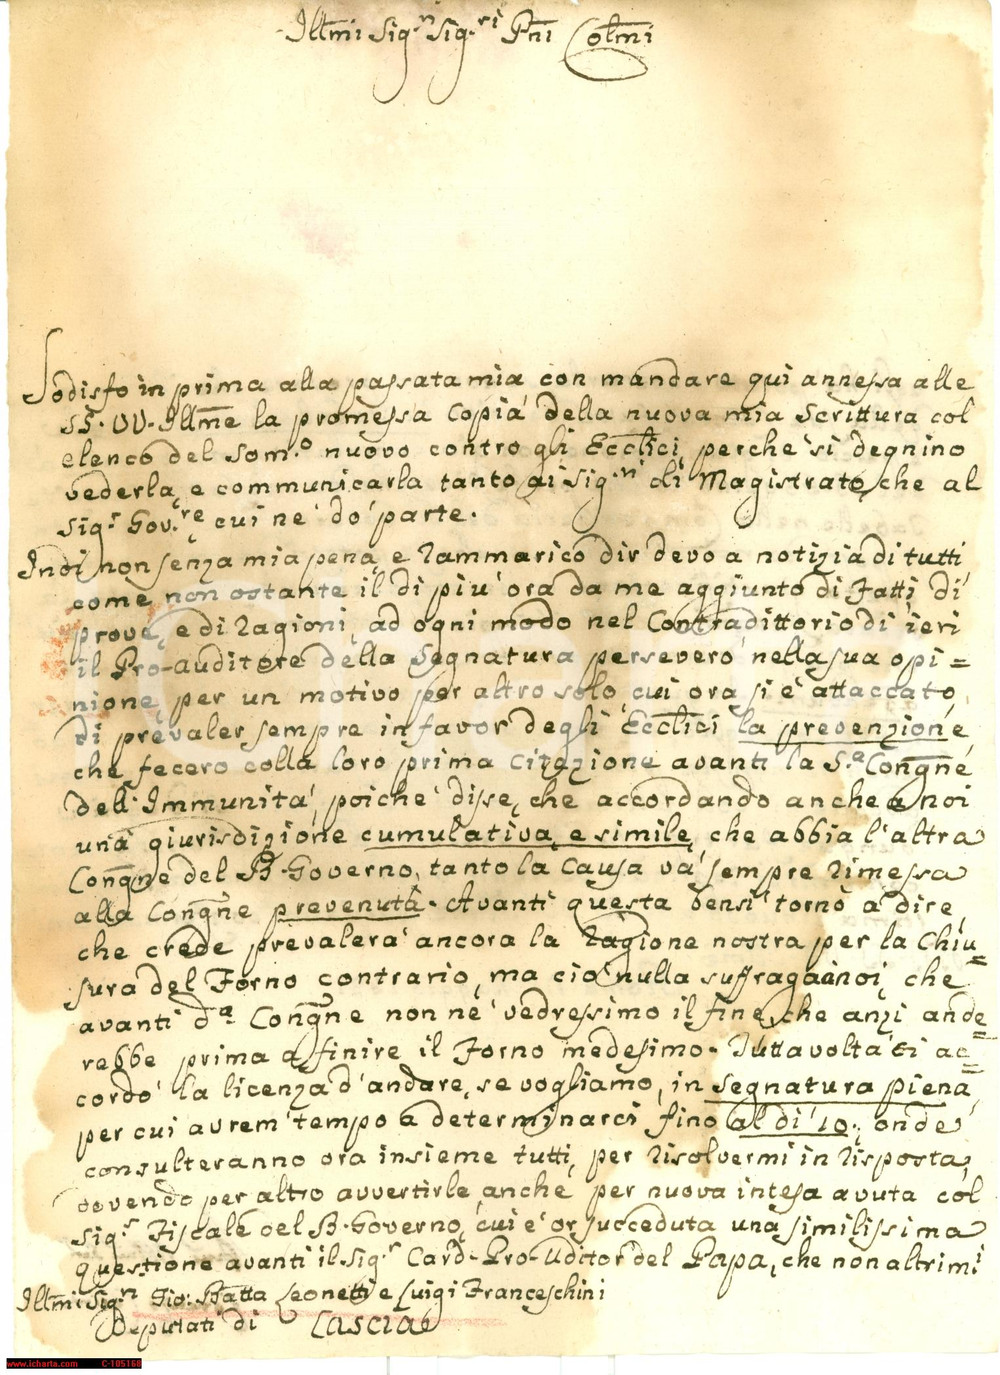 Illmi Sig.n Sig.ri Pni Colmi
Sodisfo in prima alla passata mia con mandare qui annessa alle
SS. VV. Illme la promessa Copia della nuova mia Scrittura col
elenco del Som.o nuovo contro gli Ecclici, perche si degnino
vederla, e communicarla tanto ai Sig.ri di Magistrato, che al
Sig.r Gov.re cui ne dò parte.
Indi non senza mia pena, e rammarico dir devo a notizia di tutti,
come non ostante il di più ora da me aggiunto di Fatti, di
prove, e di ragioni, ad ogni modo nel Contradittorio di ieri
il Pro-auditore della Segnatura perseverò nella sua opi=
nione, per un motivo per altro solo, cui ora si è attaccato,
di prevaler sempre in favor degli Ecclici la prevenzione,
che fecero colla loro prima Citazione avanti la S.a Congne
dell'Immunità, poiche disse, che accordando anche a noi
una giurisdizione cumulativa, e simile, che abbia l'altra
Congne del B. Governo, tanto la Causa và sempre rimessa
alla Congne prevenuta. Avanti questa bensì tornò a dire,
che crede prevalerà ancora la ragione nostra per la Chiu=
sura del Forno contrario, ma ciò nulla suffraga a noi, che
avanti da. Congne non ne vedressimo il fine, che anzi ande=
rebbe prima a finire il Forno medesimo. Tuttavolta ci ac=
cordò la licenza d'andare, se vogliamo, in Segnatura piena,
per cui avrem tempo a determinarci fino al dì 10., onde
consulteranno ora insieme tutti, per risolvermi in risposta,
dovendo per altro avvertirle, anche per nuova intesa avuta col
Sig.r Fiscale del B. Governo, cui è or succeduta una similissima
questione avanti il Sig.r Card. Pro-Uditor del Papa, che non altrimi
Illmi Sig.n Gio: Batta Leonetti e Luigi Franceschini
Deputati di Cascia
www.icharta.com C-105166